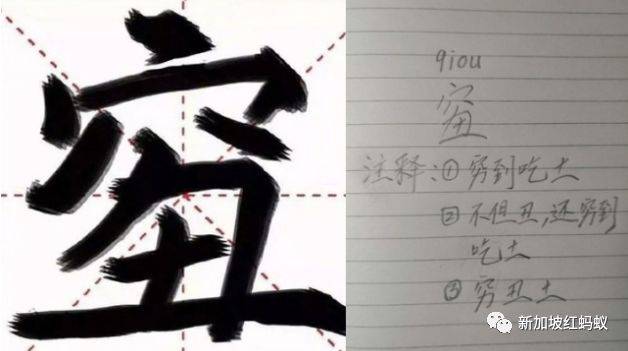 qiou
注释:①穷到吃土
②不但丑,还穷到
吃土
③穷丑土
新加坡红蚂蚁